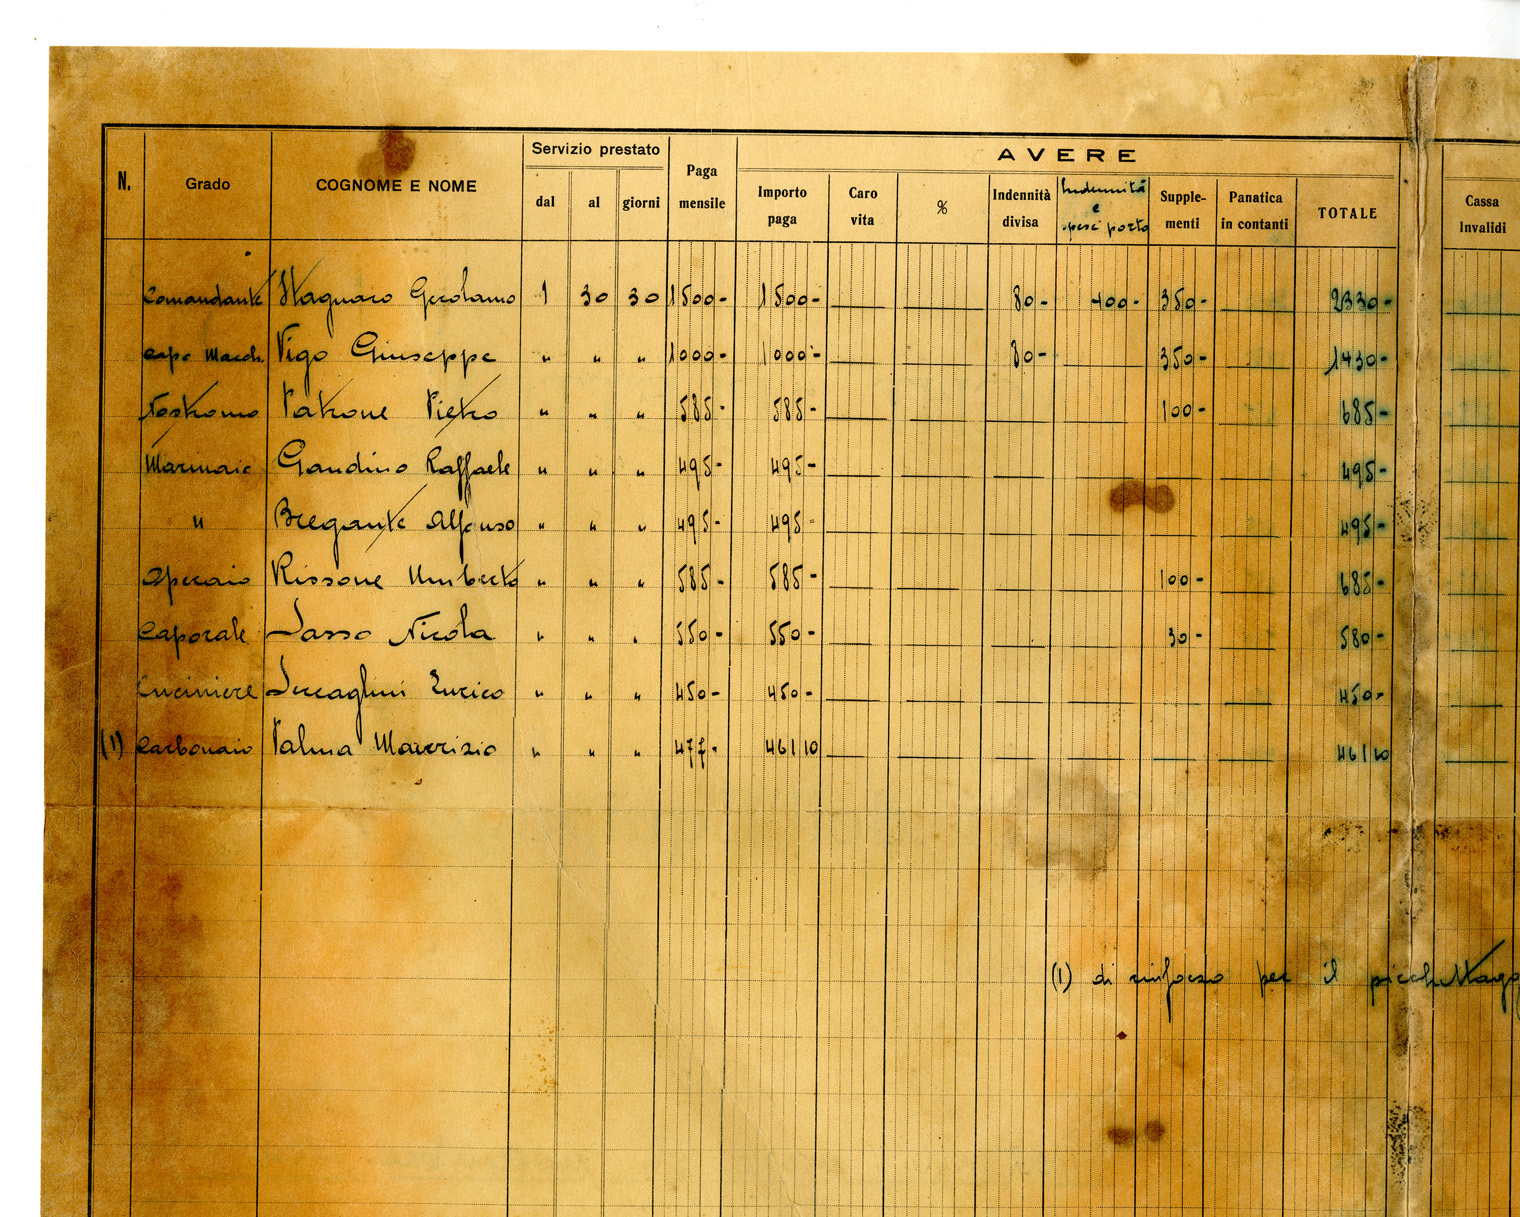 N. Grado COGNOME E NOME Servizio prestato dal al giorni Paga mensile AVERE Importo paga Caro vita % Indennità divisa Indennità e spese porto Supple-menti Panatica in contanti TOTALE Cassa Invalidi
Comandante Stagnaro Gerolamo 1 30 30 1500- 1500- 80- 400- 350- 2330-
Capo Macch. Vigo Giuseppe " " " 1000- 1000- 80- 350- 1430-
Nostromo Patrone Pietro " " " 585- 585- 100- 685-
Marinaio Gandino Raffaele " " " 495- 495- 495-
" Bregante Alfonso " " " 495- 495- 495-
Operaio Rissone Umberto " " " 585- 585- 100- 685-
Caporale Sasso Nicola " " " 550- 550- 30- 580-
Cuciniere Enrico " " " 450- 450- 450-
(1) Carbonaio Palma Maurizio " " " 477- 461 10 461 10
(1) di rinforzo per il